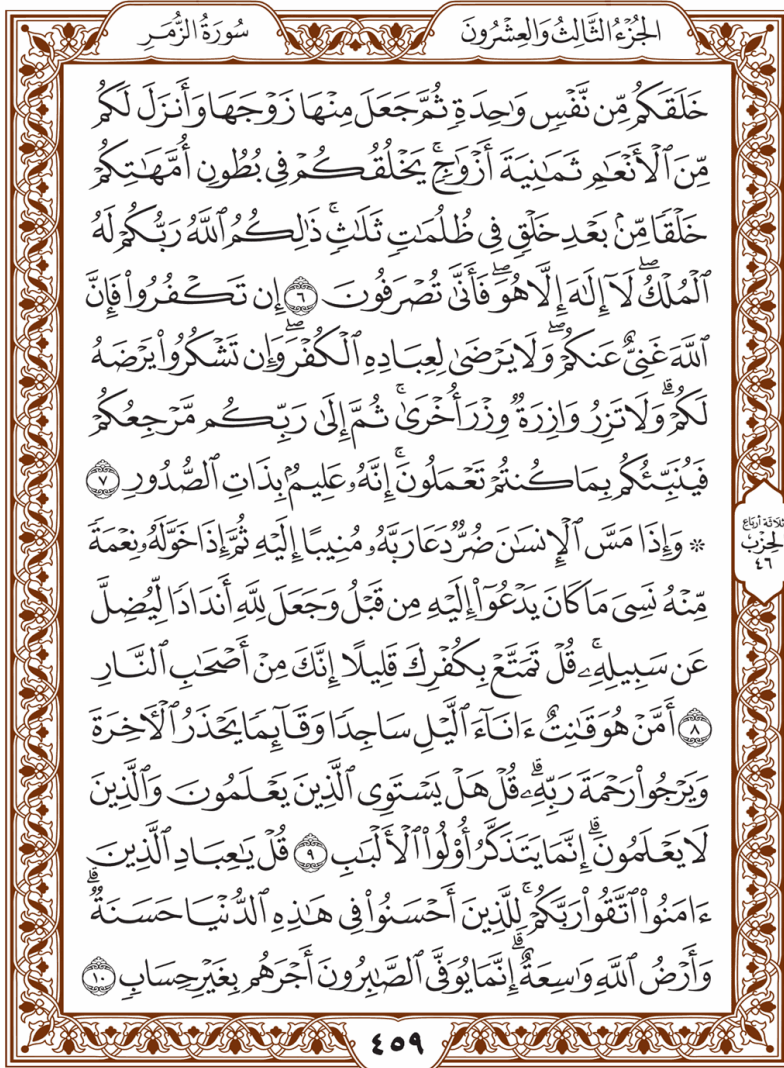 الجُزْءُ الثَّالِثُ وَالعِشْرُونَ سُورَةُ الزُّمَرِ
خَلَقَكُم مِّن نَّفْسٖ وَٰحِدَةٖ ثُمَّ جَعَلَ مِنْهَا زَوْجَهَا وَأَنزَلَ لَكُم
مِّنَ ٱلْأَنْعَٰمِ ثَمَٰنِيَةَ أَزْوَٰجٖۚ يَخْلُقُكُمْ فِي بُطُونِ أُمَّهَٰتِكُمْ
خَلْقٗا مِّنۢ بَعْدِ خَلْقٖ فِي ظُلُمَٰتٖ ثَلَٰثٖۚ ذَٰلِكُمُ ٱللَّهُ رَبُّكُمْ لَهُ
ٱلْمُلْكُۖ لَآ إِلَٰهَ إِلَّا هُوَۖ فَأَنَّىٰ تُصْرَفُونَ ٦ إِن تَكْفُرُوا۟ فَإِنَّ
ٱللَّهَ غَنِيٌّ عَنكُمْۖ وَلَا يَرْضَىٰ لِعِبَادِهِ ٱلْكُفْرَۖ وَإِن تَشْكُرُوا۟ يَرْضَهُ
لَكُمْۗ وَلَا تَزِرُ وَازِرَةٞ وِزْرَ أُخْرَىٰۚ ثُمَّ إِلَىٰ رَبِّكُم مَّرْجِعُكُمْ
فَيُنَبِّئُكُم بِمَا كُنتُمْ تَعْمَلُونَۚ إِنَّهُۥ عَلِيمُۢ بِذَاتِ ٱلصُّدُورِ ٧
۞ وَإِذَا مَسَّ ٱلْإِنسَٰنَ ضُرّٞ دَعَا رَبَّهُۥ مُنِيبًا إِلَيْهِ ثُمَّ إِذَا خَوَّلَهُۥ نِعْمَةٗ
مِّنْهُ نَسِيَ مَا كَانَ يَدْعُوٓا۟ إِلَيْهِ مِن قَبْلُ وَجَعَلَ لِلَّهِ أَندَادٗا لِّيُضِلَّ
عَن سَبِيلِهِۦۚ قُلْ تَمَتَّعْ بِكُفْرِكَ قَلِيلًا إِنَّكَ مِنْ أَصْحَٰبِ ٱلنَّارِ
٨ أَمَّنْ هُوَ قَٰنِتٌ ءَانَآءَ ٱلَّيْلِ سَاجِدٗا وَقَآئِمٗا يَحْذَرُ ٱلْأٓخِرَةَ
وَيَرْجُوا۟ رَحْمَةَ رَبِّهِۦۗ قُلْ هَلْ يَسْتَوِي ٱلَّذِينَ يَعْلَمُونَ وَٱلَّذِينَ
لَا يَعْلَمُونَۗ إِنَّمَا يَتَذَكَّرُ أُو۟لُوا۟ ٱلْأَلْبَٰبِ ٩ قُلْ يَٰعِبَادِ ٱلَّذِينَ
ءَامَنُوا۟ ٱتَّقُوا۟ رَبَّكُمْۚ لِلَّذِينَ أَحْسَنُوا۟ فِي هَٰذِهِ ٱلدُّنْيَا حَسَنَةٞۗ
وَأَرْضُ ٱللَّهِ وَٰسِعَةٌۗ إِنَّمَا يُوَفَّى ٱلصَّٰبِرُونَ أَجْرَهُم بِغَيْرِ حِسَابٖ ١٠
ثلاثة أرباع
الحزب
٤٦
٤٥٩